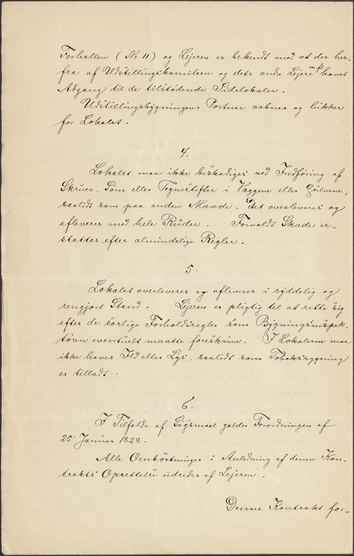 Forhallen (Nr 11) og Lejeren er bekendt med at der her-
fra af Udstillingskomiteen og dets andre Lejere haves
Adgang til de tilstødende Sidelokaler.
Udstillingsbygningens Portner aabner og lukker
for Lokalet.
4.
Lokalet maa ikke beskadiges ved Indføring af
Skruer, Søm eller Tegnestifter i Væggene eller Gulvene,
saalidt som paa anden Maade. Det overleveres og
afleveres med hele Ruder. Forvoldt Skade er-
stattes efter almindelige Regler.
5.
Lokalet overleveres og afleveres i ryddelig og
rengjort Stand. Lejeren er pligtig til at rette sig
efter de særlige Forholdsregler som Bygningsinspek-
tøren eventuelt maatte foreskrive. I Lokalerne maa
ikke haves Ild eller Lys, saalidt som Tobaksrygning
er tilladt.
6.
I Tilfælde af Søgsmaal gælder Forordningen af
25 Januar 1828.
Alle Omkostninger i Anledning af denne Kon-
trakts Oprettelse udredes af Lejeren.
Denne Kontrakt for-